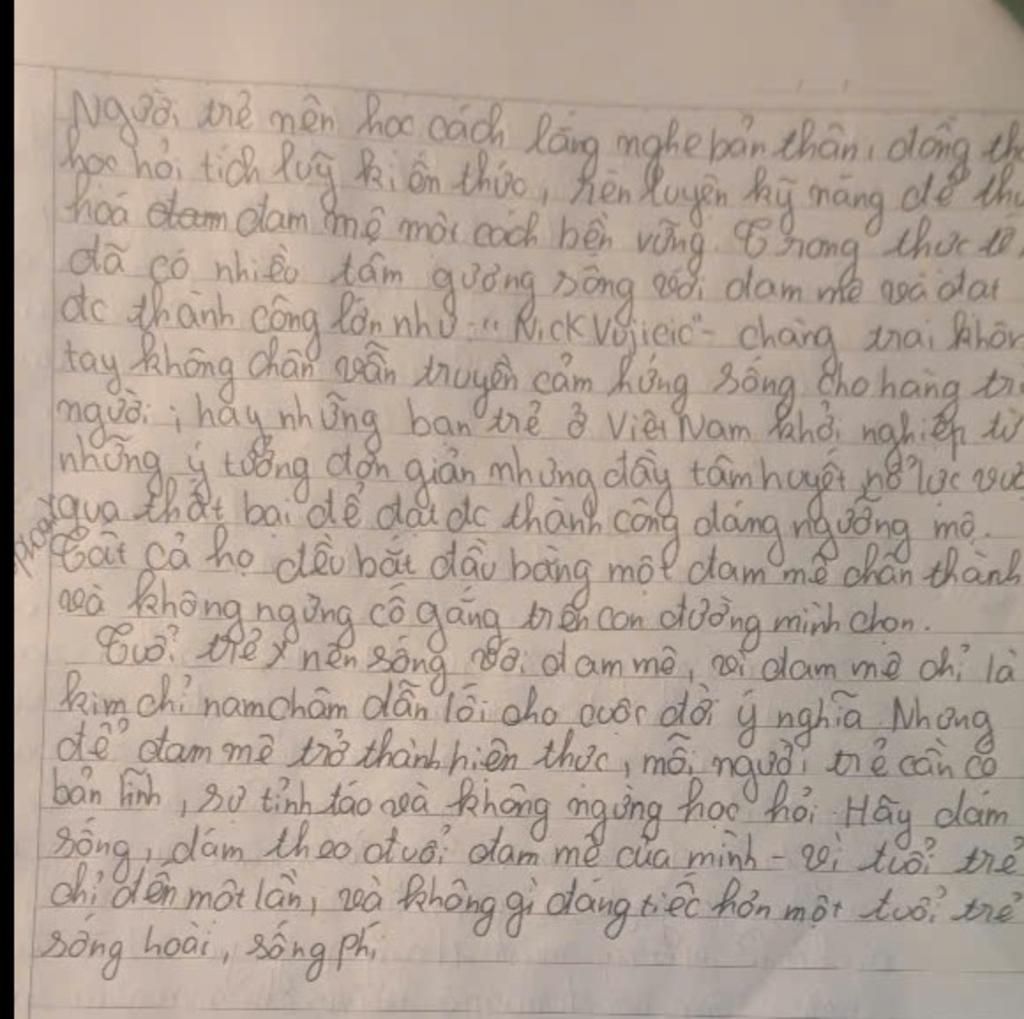 Người trẻ nên học cách lắng nghe bản thân, đồng th
học hỏi tích luỹ kiến thức, rèn luyện kỹ năng để thự
hoá đam mê một cách bền vững. Trong thực tế,
đã có nhiều tấm gương sống với đam mê và đạt
đc thành công lớn như: "Nick Vujicic" - chàng trai khôn
tay không chân vẫn truyền cảm hứng sống cho hàng tri
người; hay những bạn trẻ ở Việt Nam khởi nghiệp từ
những ý tưởng đơn giản nhưng đầy tâm huyết nỗ lực vượ
qua thất bại để đạt đc thành công đáng ngưỡng mộ.
Tất cả họ đều bắt đầu bằng một đam mê chân thành
và không ngừng cố gắng trên con đường mình chọn.
Tuổi trẻ nên sống với đam mê, vì đam mê chỉ là
kim chỉ nam châm dẫn lối cho cuộc đời ý nghĩa. Nhưng
để đam mê trở thành hiện thực, mỗi người trẻ cần có
bản lĩnh, sự tỉnh táo và không ngừng học hỏi. Hãy dám
sống, dám theo đuổi đam mê của mình - vì tuổi trẻ
chỉ đến một lần, và không gì đáng tiếc hơn một tuổi trẻ
sống hoài, sống phí